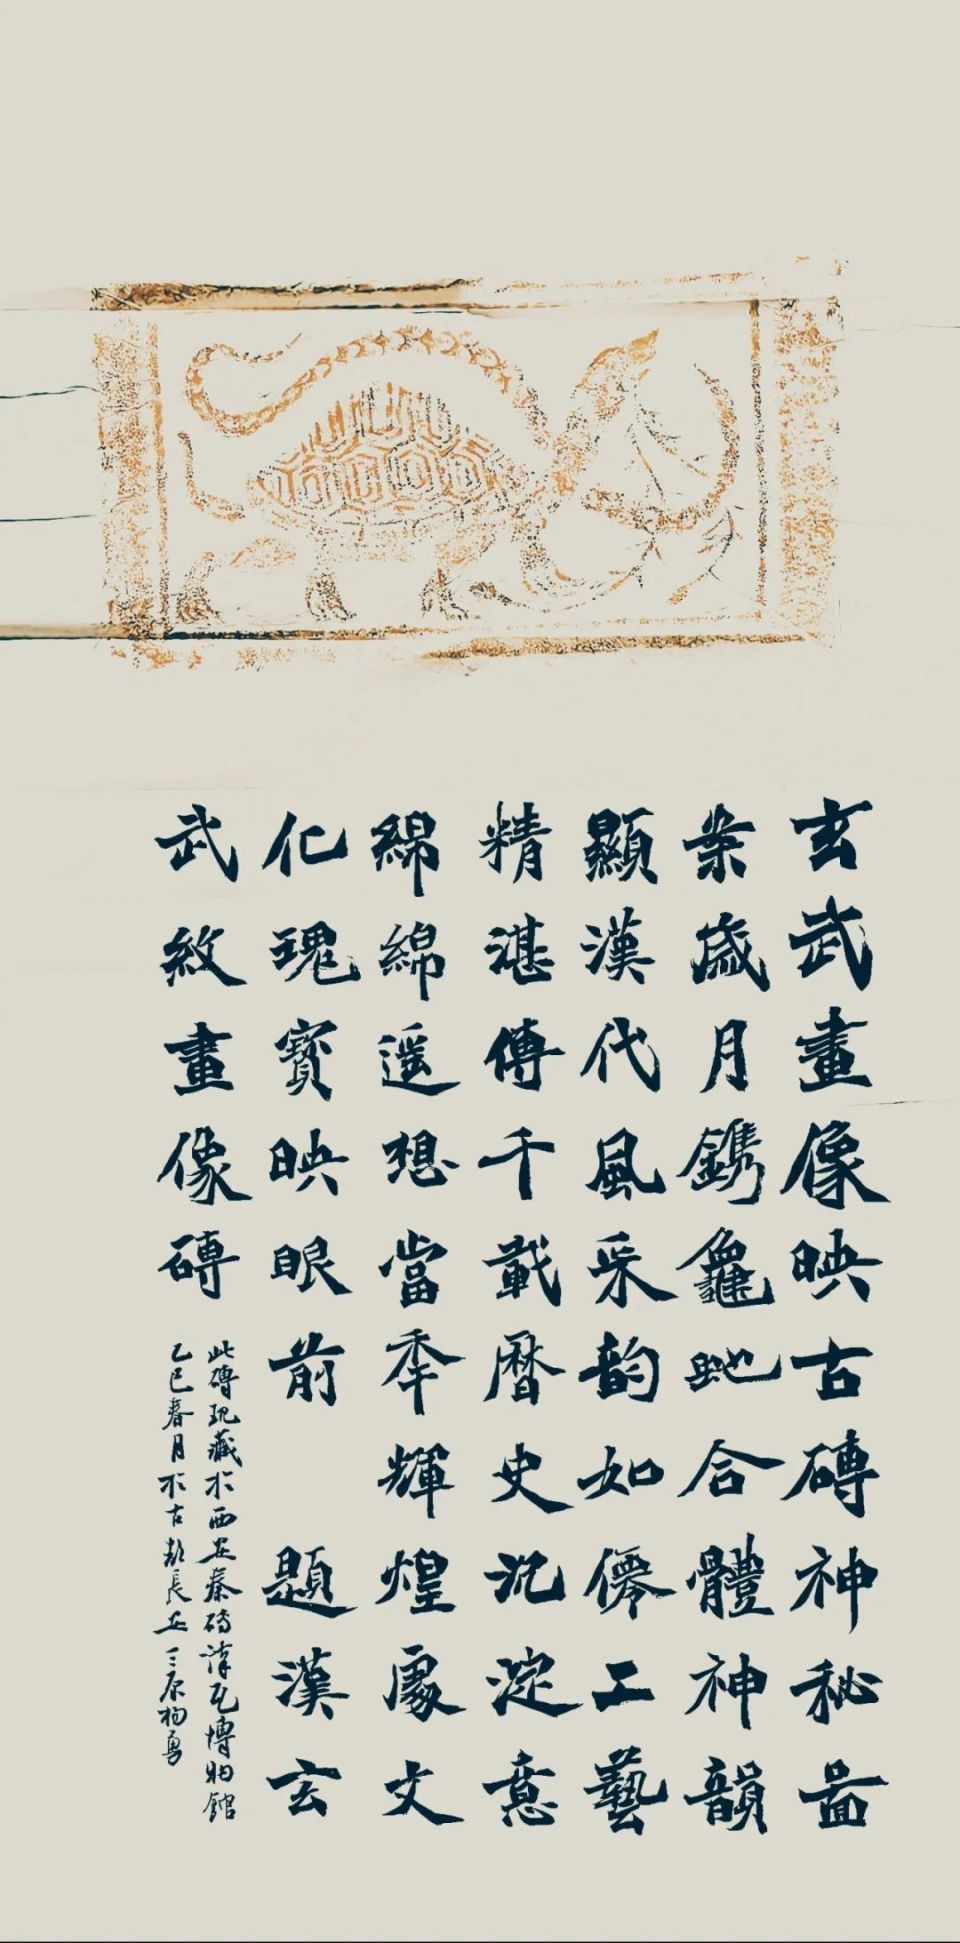 玄武畫像映古磚神秘圖
案歲月鐫龜虵合體神韻
顯漢代風采韵如僊工藝
精湛傳千載曆史沉淀意
綿綿遥想當秊輝煌處文
化瑰寳映眼前 題漢玄
武紋畫像磚
此磚現藏於西安秦磚漢瓦博物館
乙巳春月於古都長安三原楊勇